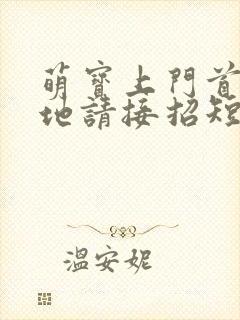 萌寶上門首
地請接招短
溫安妮